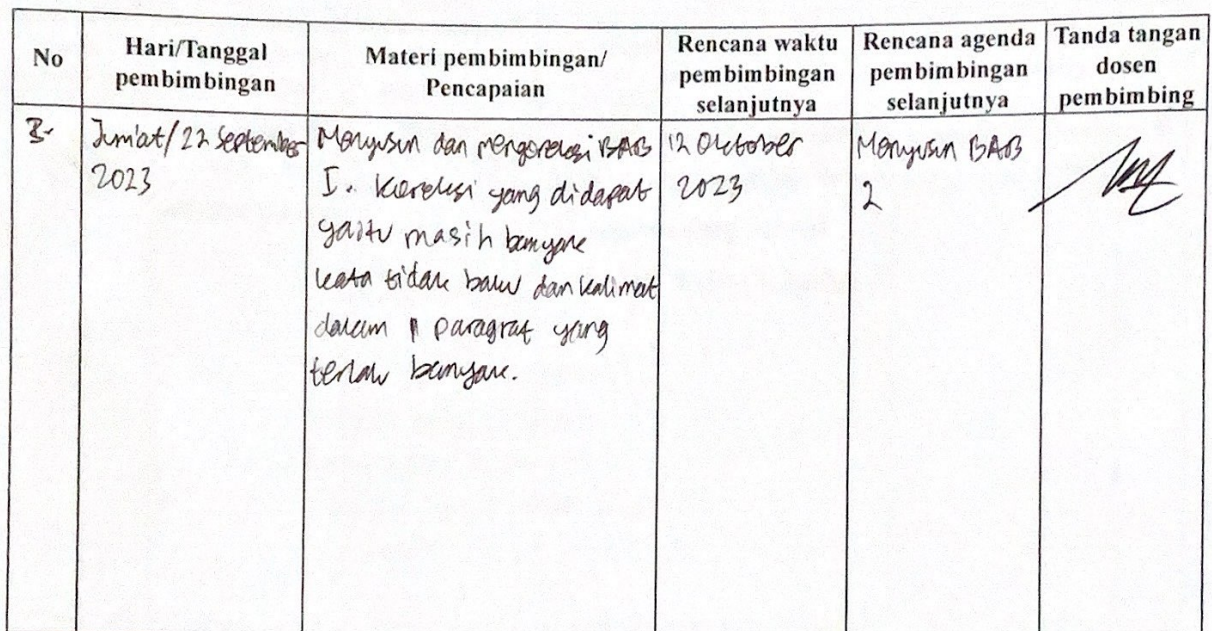 No
Hari/Tanggal
pembimbingan
Materi pembimbingan/
Pencapaian
Rencana waktu
pembimbingan
selanjutnya
Rencana agenda
pembimbingan
selanjutnya
Tanda tangan
dosen
pembimbing
3.
Jum'at/22 September
2023
Menyusun dan mengoreksi BAB
I. Koreksi yang didapat
yaitu masih banyak
kata tidak baku dan kalimat
dalam 1 paragraf yang
terlalu banyak.
12 Oktober
2023
Menyusun BAB
2